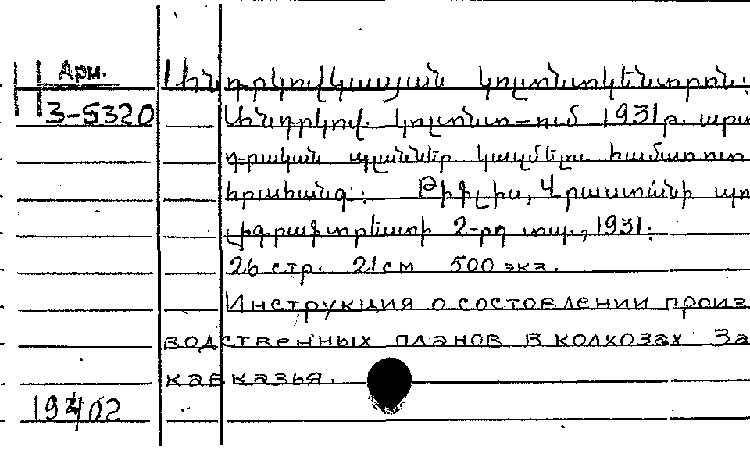 Арм.
3-5320
Անդրկովկասյան կոլտնտկենտրոն:
Անդրկովկ. կոլտնտ-ում 1931 թ. արտ
դրական պլաններ կազմելու համառոտ
հրահանգ: Թիֆլիս, Վրաստանի պո
լիգրաֆտրեստի 2-րդ տպ., 1931:
26 стр. 21 см 500 экз.
Инструкция о состовлении произ
водственных планов в колхозах За
кавказья.